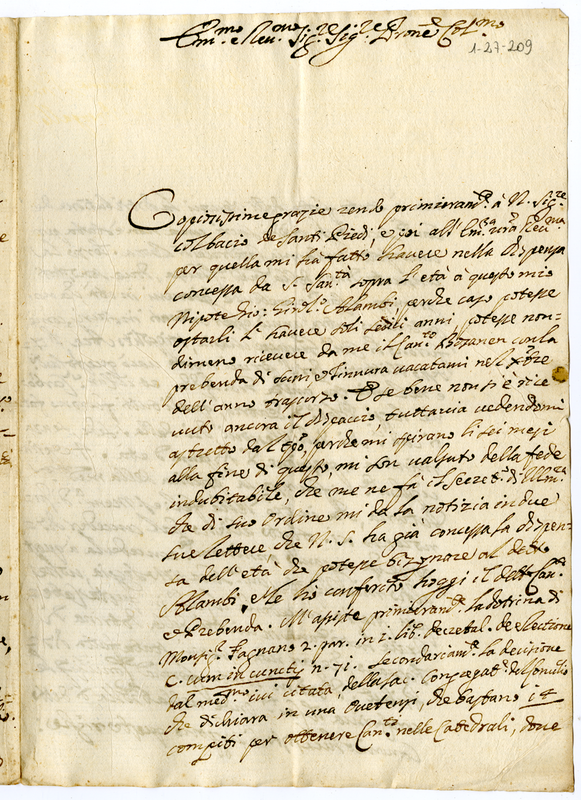 Em.mo e Rev.mo Sig.re Sig.re Prone Col.mo
1-27-209
Copiosissime grazie rendo primieram.te à N. Sig.re
col bacio de Santi Piedi, e poi all' Em.za vra Rev.ma
per quella mi hà fatto havere nella dispensa
concessa da S. San.tà sopra l'età a questo mio
Nipote Gio: Girol.o Alambi, perche caso potesse
ostarli l'havere soli sedici anni potesse non=
dimeno ricevere da me il Can.to con la
prebenda di vacatami nel Xbre
dell'anno trascorso. E se bene non si è rice
vuto ancora il dispaccio, tuttavia vedendomi
astretto dal tpo, perche mi spirano li sei mesi
alla fine di questo, mi son valsuto della fede
indubitabile, che me ne fà il Secret.o di
che di suo ordine mi dà la notizia in due
sue lettere che N. S. ha già concessa la dispen=
sa dell'età che potesse bisognare al detto
Alambi, e le hò conferito hoggi il detto Can.to
e Prebenda. M'assiste primieram.te la dotrina di
Monsig.r Fagnano 2. par. in 2. lib. decretal. de electione
c. cum in cunctis n. 71. Secondariam.te la decisione
dal med.mo ivi citata della Sac. Congregat. del Concilio
che dichiara in una Overten, che bastano 14
compiti per ottenere Can.to nelle Catedrali, dove